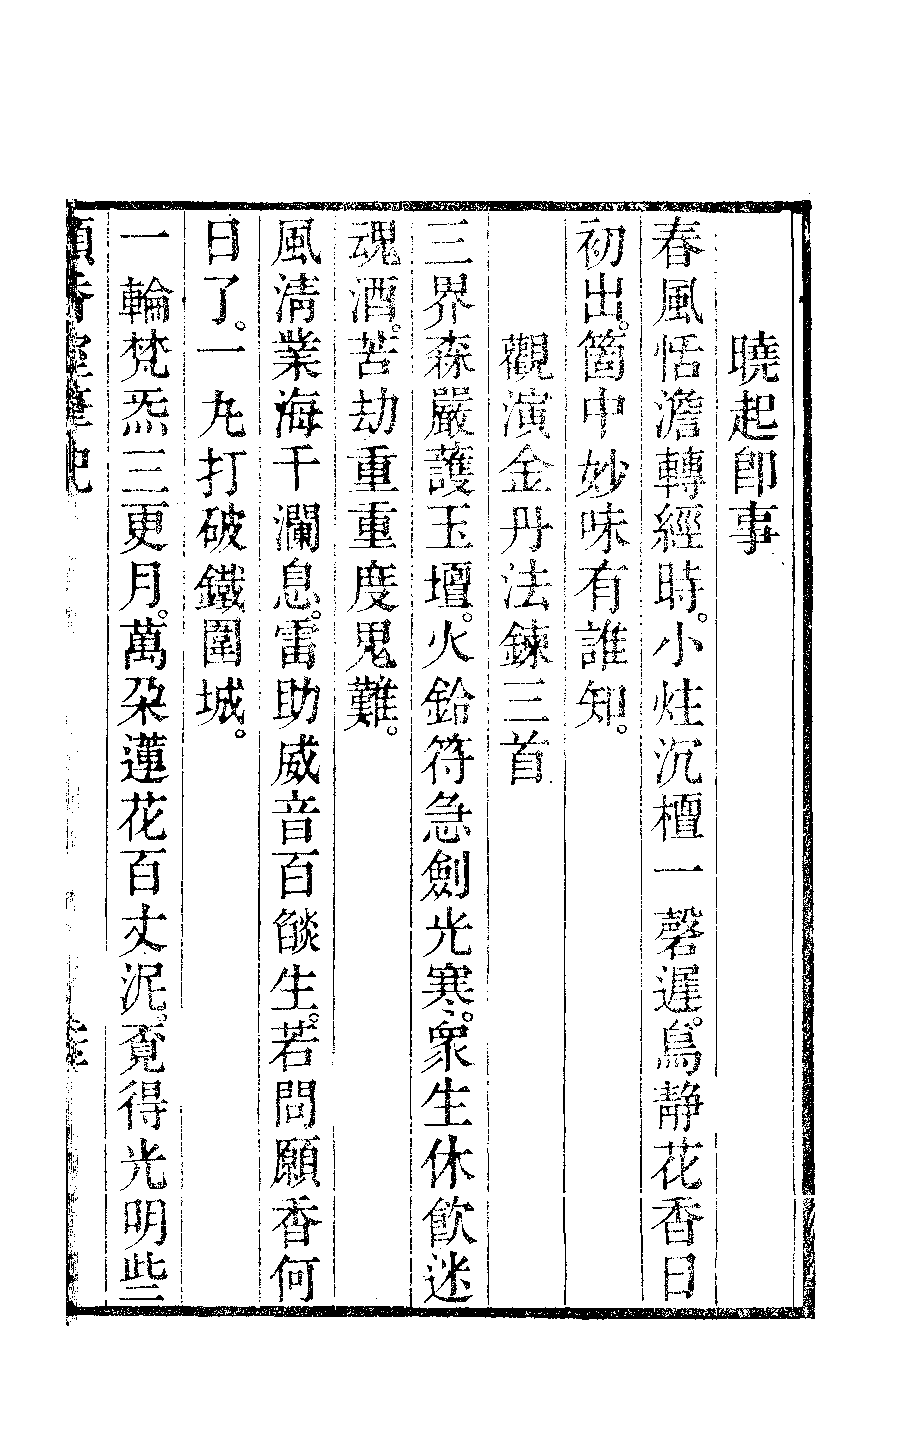 曉起卽事
春風恬澹轉經時。小炷沉檀一磬遲。鳥靜花香日
初出。箇中妙味有誰知。
觀演金丹法鍊三首
三界森嚴護玉壇。火鈴符急劍光寒。衆生休飮迷
魂酒。苦劫重重度鬼難。
風淸業海千瀾息。雷助威音百燄生。若問願香何
日了。一丸打破鐵圍城。
一輪梵炁三更月。萬朶蓮花百丈泥。覔得光明些